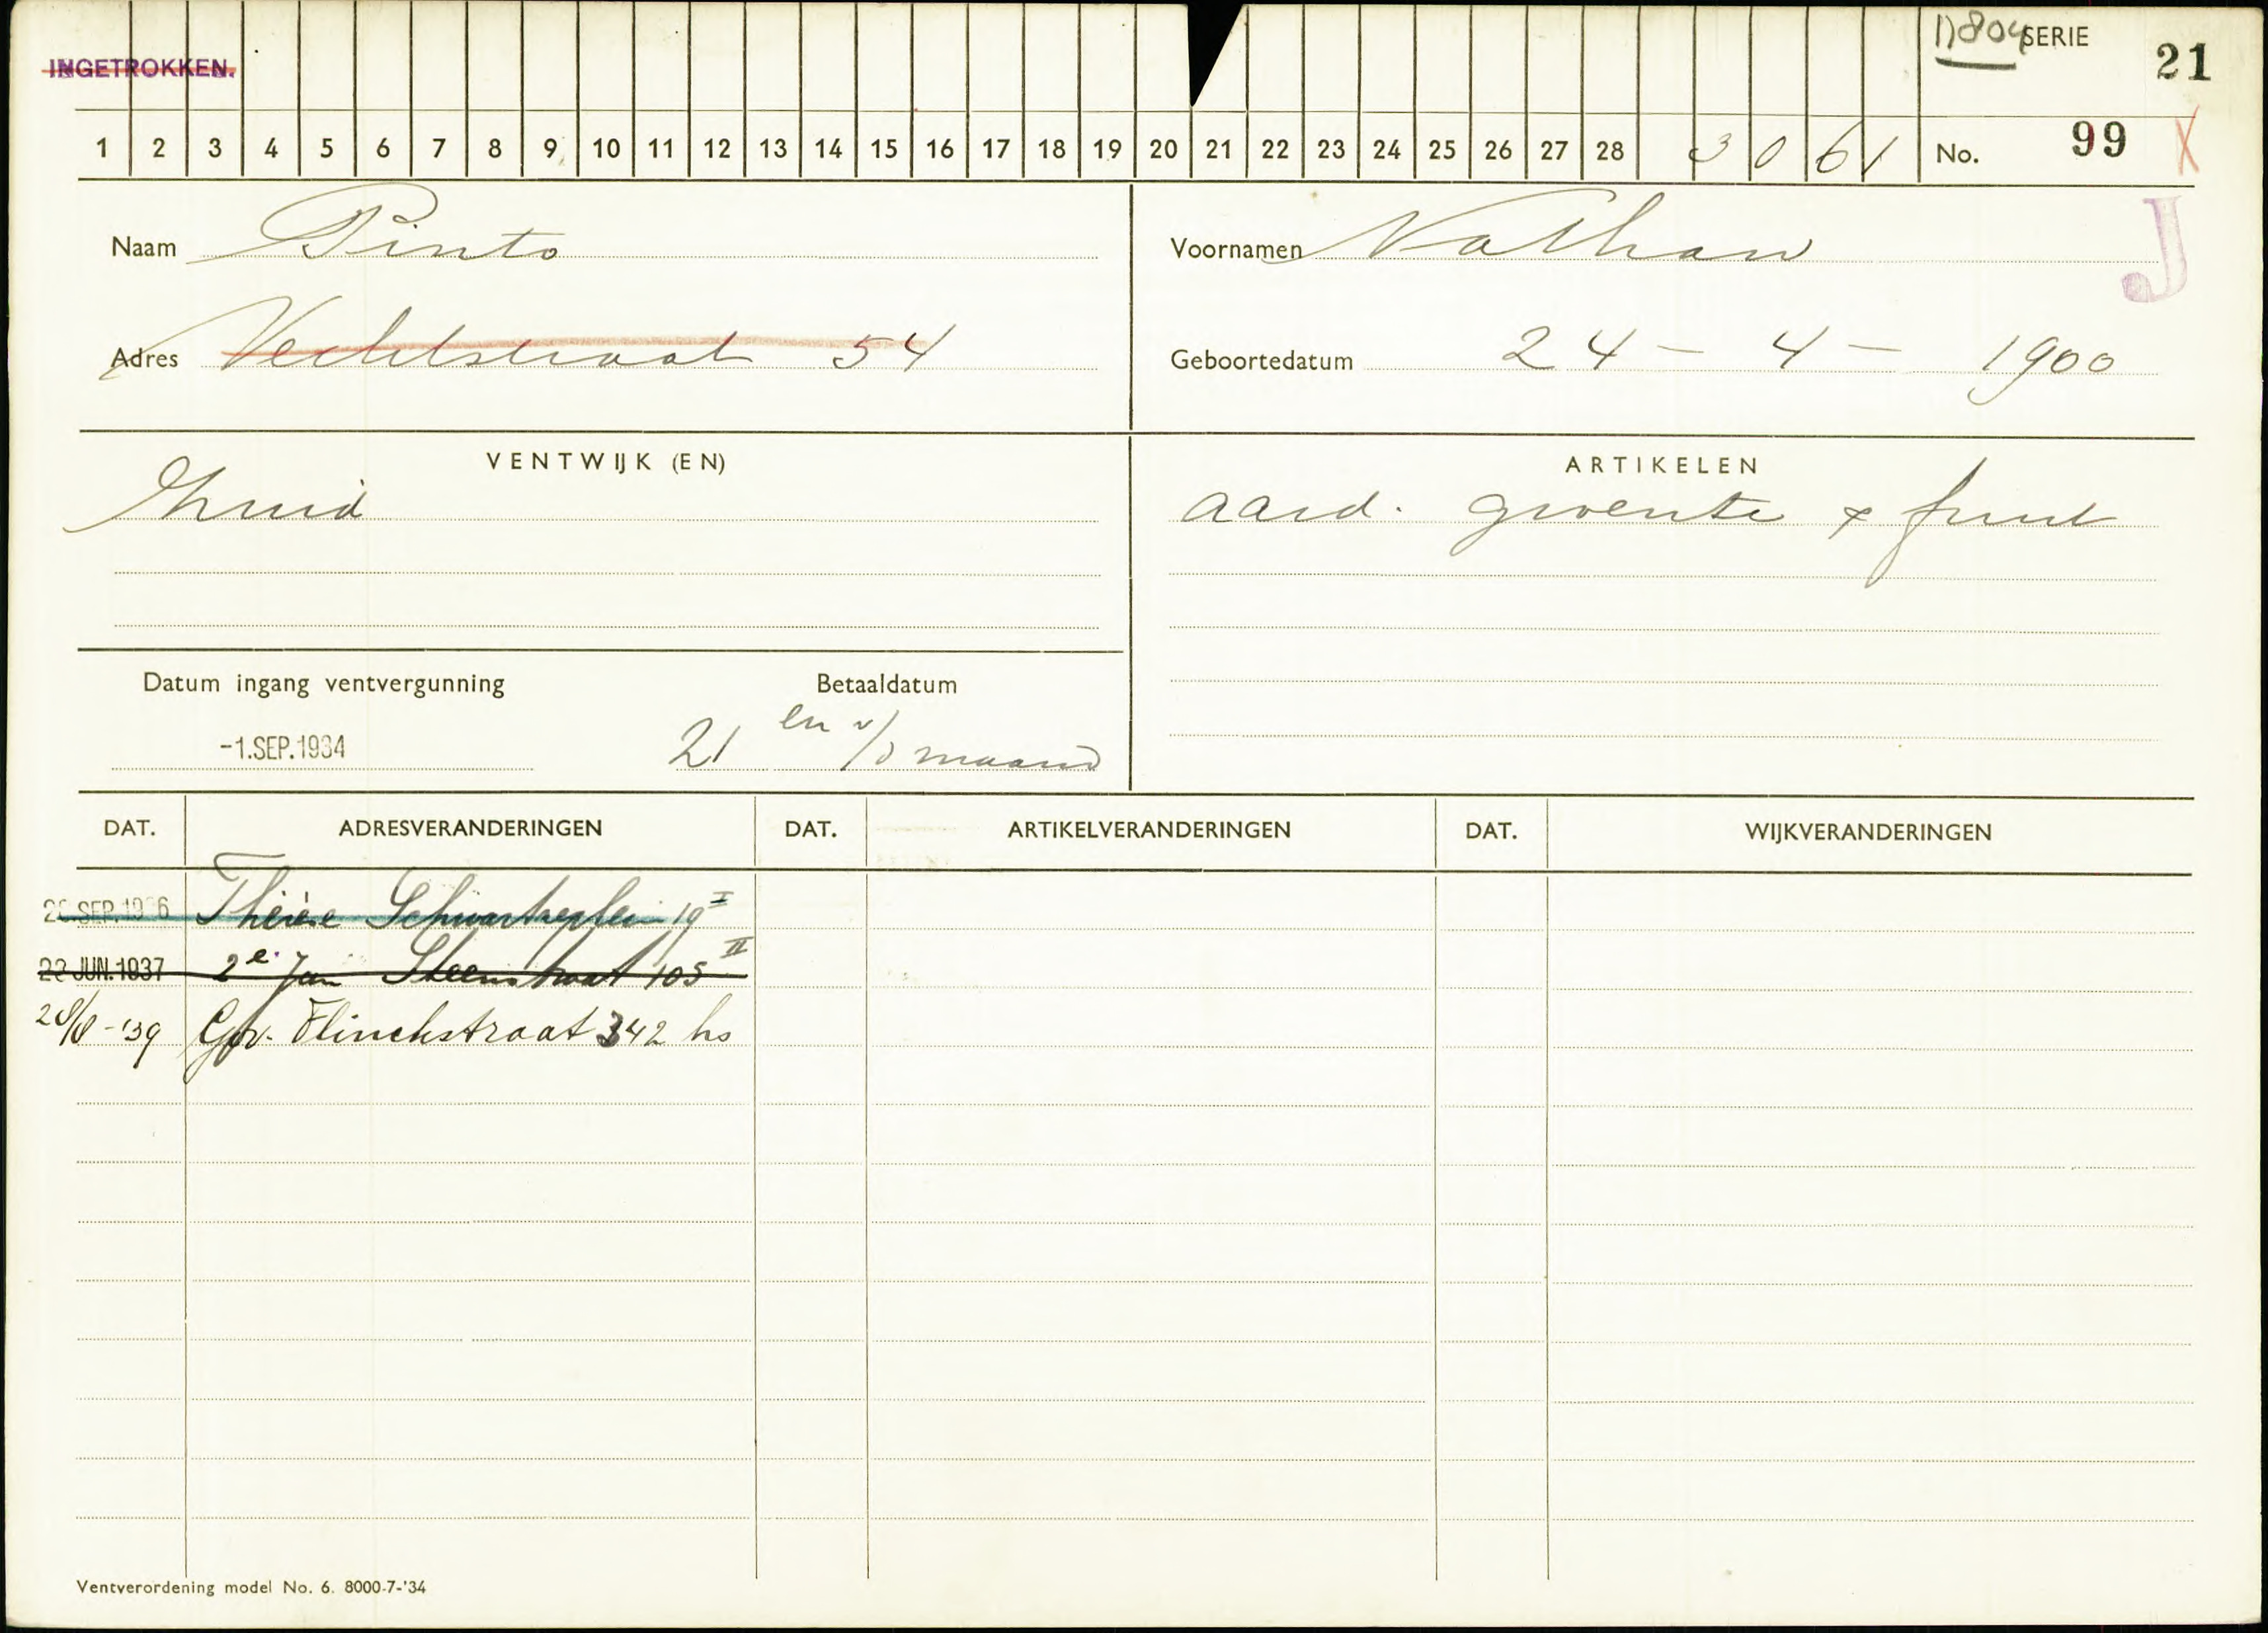 INGETROKKEN.
D804 SERIE 21
1 2 3 4 5 6 7 8 9 10 11 12 13 14 15 16 17 18 19 20 21 22 23 24 25 26 27 28 3 0 6 1 No. 99 X
Naam Pinto
Voornamen Nathan
J
Adres Vechtstraat 54
Geboortedatum 24 - 4 - 1900
VENTWIJK (EN)
Zuid
ARTIKELEN
aard. groente & fruit
Datum ingang ventvergunning
-1.SEP.1934
Betaaldatum
21 en v/d maand
DAT. ADRESVERANDERINGEN DAT. ARTIKELVERANDERINGEN DAT. WIJKVERANDERINGEN
SEP.1936 Thérèse Schwartzeplein 19 I
22 JUN.1937 2e Jan Steenstraat 105 II
28/8-'39 Gov. Flinckstraat 342 hs
Ventverordening model No. 6. 8000-7-'34